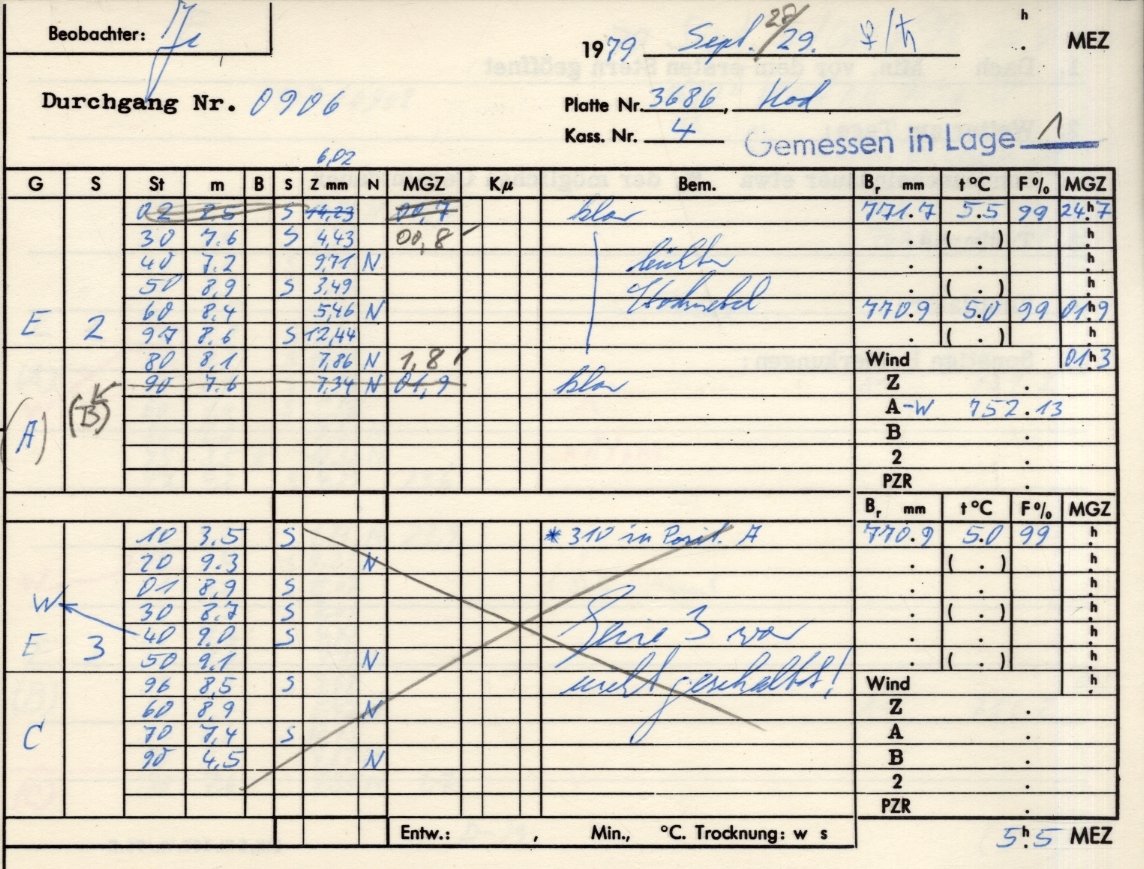 Beobachter: Je
1979 Sept. 28/29. ♀/♄ h . MEZ
Durchgang Nr. 0906
Platte Nr. 3686, Kod
Kass. Nr. 4
Gemessen in Lage 1
6,02
G S St m B S Z mm N MGZ Kμ Bem. Br mm t °C F % MGZ
02 2.5 S 14,23 00,7 klar 771.7 5.5 99 24h.7
30 7.6 S 4,43 00,8 ( . ) h
40 7.2 9,71 N . . h
50 8,9 S 3,49 ( . ) h
60 8,4 5,46 N Hochnebel 770.9 5.0 99 01h9
E 2 97 8.6 S 12,44 ( . ) h
80 8,1 7,86 N 1,8 Wind 01h3
90 7.6 7,34 N 01,9 klar Z .
(A) (B) A-W 752.13
B .
2 .
PZR .
Br mm t °C F % MGZ
10 3.5 S *310 in Posit. A 770.9 5.0 99 h
20 9.3 N . ( . ) h
01 8,9 S . . h
W 30 8.7 S . ( . ) h
E 3 40 9.0 S Serie 3 war . . h
50 9.1 N . ( . ) h
96 8,5 S nicht geschaltet! Wind h
60 8,9 N Z .
C 70 7,4 S A .
90 4,5 N B .
2 .
PZR .
Entw.: , Min., °C. Trocknung: w s 5h.5 MEZ